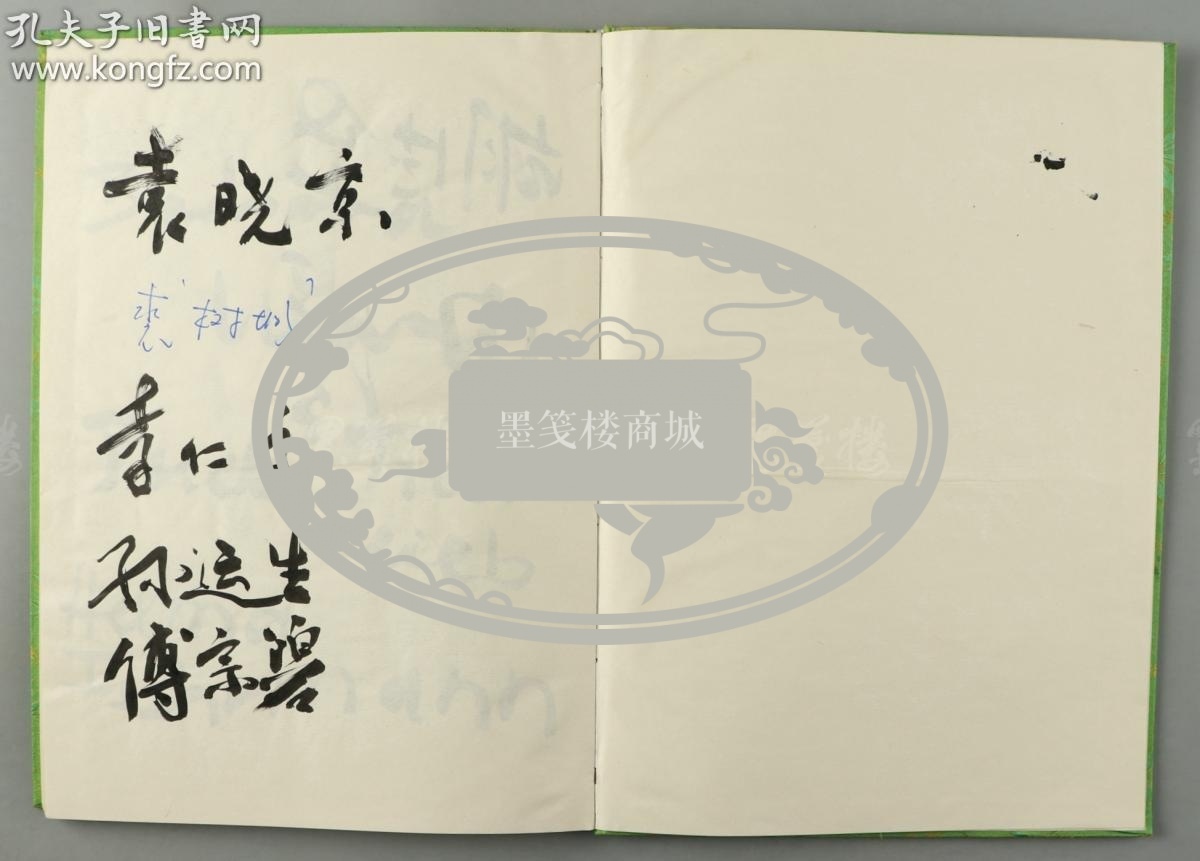 孔夫子旧书网
www.kongfz.com
袁晓京
裘
李仁
孙运生
傅宗碧
墨笺楼商城